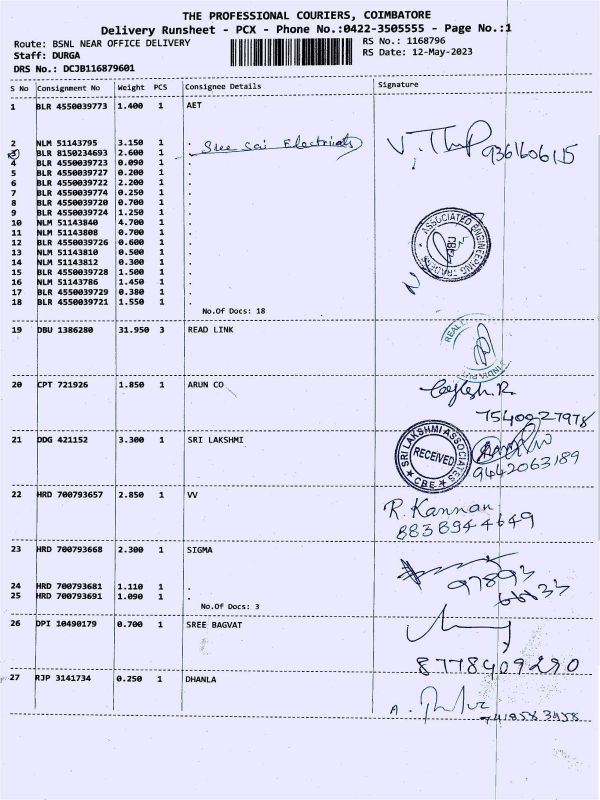 THE PROFESSIONAL COURIERS, COIMBATORE
Delivery Runsheet - PCX - Phone No.:0422-3505555 - Page No.:1
Route: BSNL NEAR OFFICE DELIVERY RS No.: 1168796
Staff: DURGA RS Date: 12-May-2023
DRS No.: DCJB116879601
S No Consignment No Weight PCS Consignee Details Signature
1 BLR 4550039773 1.400 1 AET
2 NLM 51143795 3.150 1 . Sree Sai Electricals
BLR 8150234693 2.600 1 .
4 BLR 4550039723 0.090 1 .
5 BLR 4550039727 0.200 1 .
6 BLR 4550039722 2.200 1 .
7 BLR 4550039774 0.250 1 .
8 BLR 4550039720 0.700 1 .
9 BLR 4550039724 1.250 1 .
10 NLM 51143840 4.700 1 .
11 NLM 51143808 0.700 1 .
12 BLR 4550039726 0.600 1 .
13 NLM 51143810 0.500 1 .
14 NLM 51143812 0.300 1 .
15 BLR 4550039728 1.500 1 .
16 NLM 51143786 1.450 1 .
17 BLR 4550039729 0.380 1 .
18 BLR 4550039721 1.550 1 .
ASSOCIATED ENGINEERING TRADERS
No.Of Docs: 18
19 DBU 1386280 31.950 3 READ LINK
REAL INDIA
20 CPT 721926 1.850 1 ARUN CO
7540027978
21 DDG 421152 3.300 1 SRI LAKSHMI
SRI LAKSHMI ASSOCIATES
RECEIVED
CBE
9442063189
22 HRD 700793657 2.850 1 VV
R. Kannan
8838944649
23 HRD 700793668 2.300 1 SIGMA
24 HRD 700793681 1.110 1 .
25 HRD 700793691 1.090 1 .
No.Of Docs: 3
26 DPI 10490179 0.700 1 SREE BAGVAT
8778409290
27 RJP 3141734 0.250 1 DHANLA